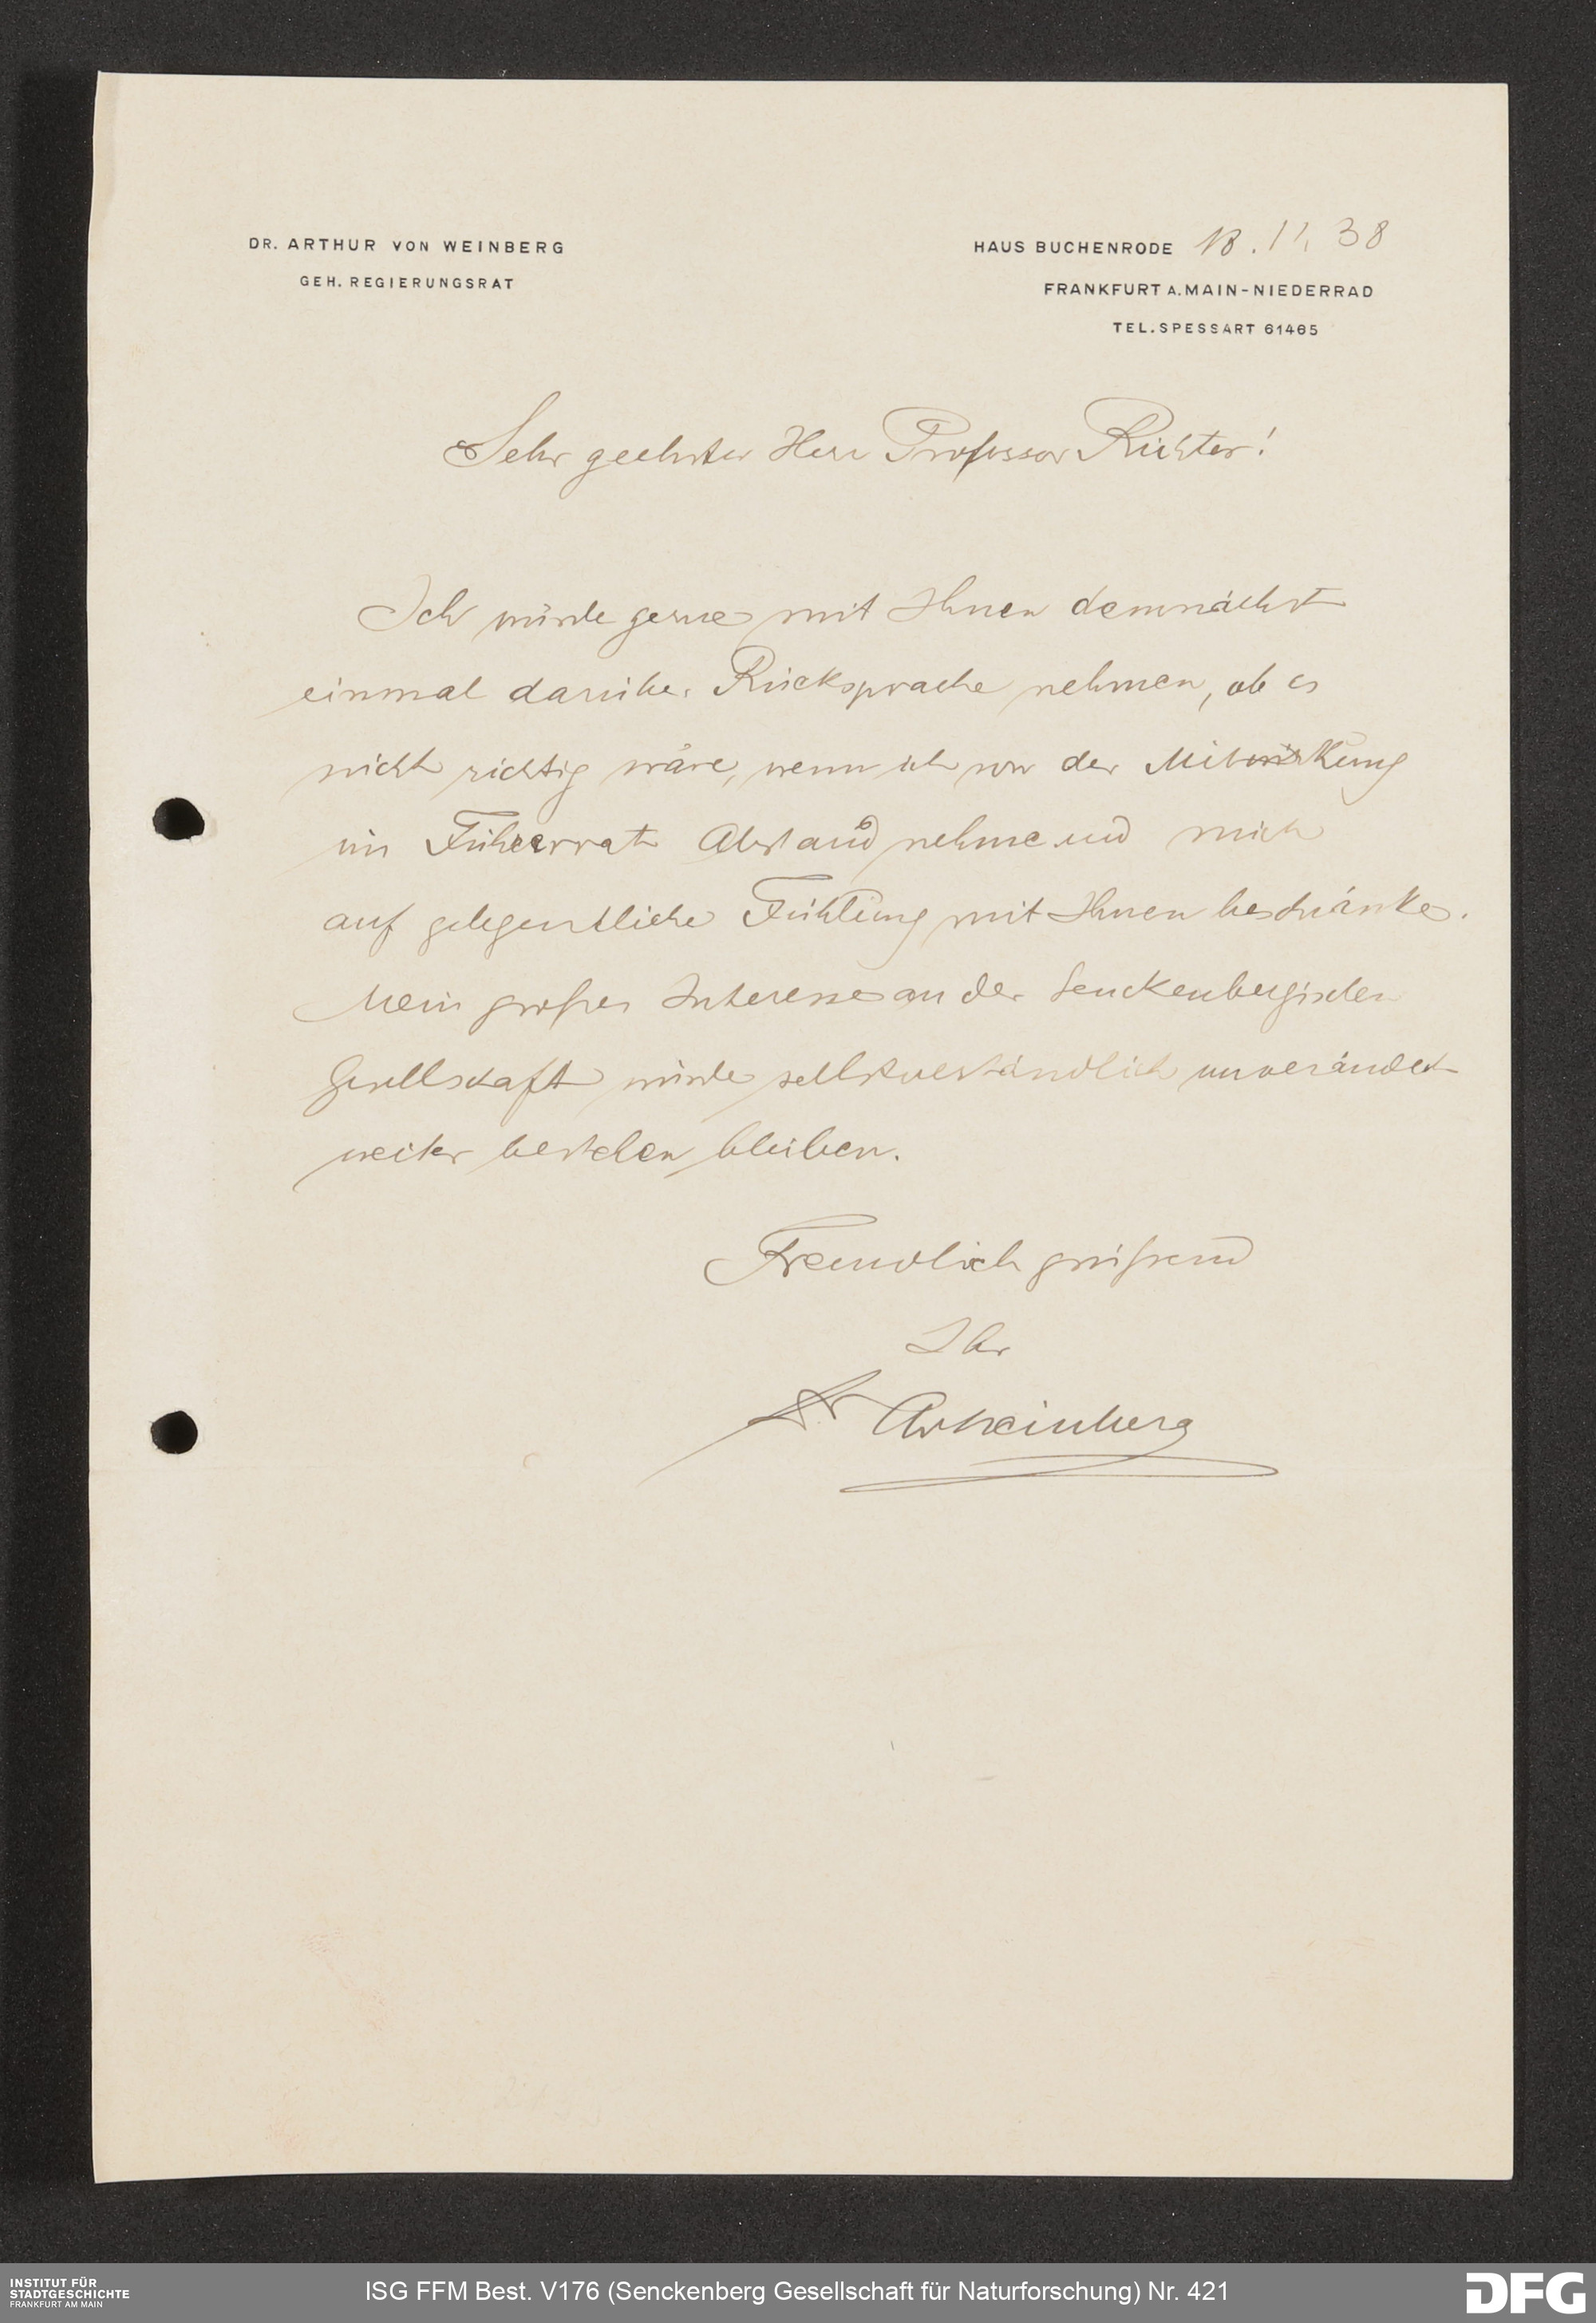 DR. ARTHUR VON WEINBERG
GEH. REGIERUNGSRAT
HAUS BUCHENRODE 18. 11. 38
FRANKFURT A. MAIN-NIEDERRAD
TEL. SPESSART 61465
Sehr geehrter Herr Professor Richter!
Ich würde gerne mit Ihnen demnächst
einmal darüber Rücksprache nehmen, ob es
nicht richtig wäre, wenn ich von der Mitwirkung
im Führerrat Abstand nehme und mich
auf gelegentliche Fühlung mit Ihnen beschränke.
Mein großes Interesse an der Senckenbergischen
Gesellschaft würde selbstverständlich unverändert
weiter bestehen bleiben.
Freundlich grüßend
Ihr
Dr A v Weinberg
INSTITUT FÜR
STADTGESCHICHTE
FRANKFURT AM MAIN
ISG FFM Best. V176 (Senckenberg Gesellschaft für Naturforschung) Nr. 421
DFG